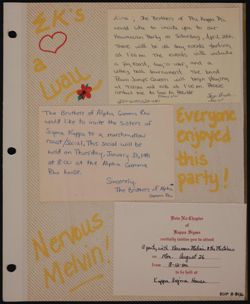 ΣK's
a
Luau
Girls, The Brothers of Phi Kappa Psi
would like to invite you to our
Hawaiian Party on Saturday, April, 26th.
There will be all day events starting
at 1:00 pm. The events will include
a pig roast, tug'o war, and a
volley ball tournament. The band
will begin playing
The Brothers of Alpha Gamma Rho
would like to invite the sisters of
Sigma Kappa to a marshmallow
roast/social. This social will be
held on Thursday, January 30, 1986
at 8:00 at the Alpha Gamma
Rho house.
Sincerely,
The Brothers of Alpha
Gamma Rho
Everyone
enjoyed
this
party!
Nervous
Melvin!
Beta Nu Chapter
of
Kappa Sigma
cordially invites you to attend
A party with Nervous Melvin & the Mistakes
on Mon. August 26
from 8-12:00 pm
to be held at
Kappa Sigma House